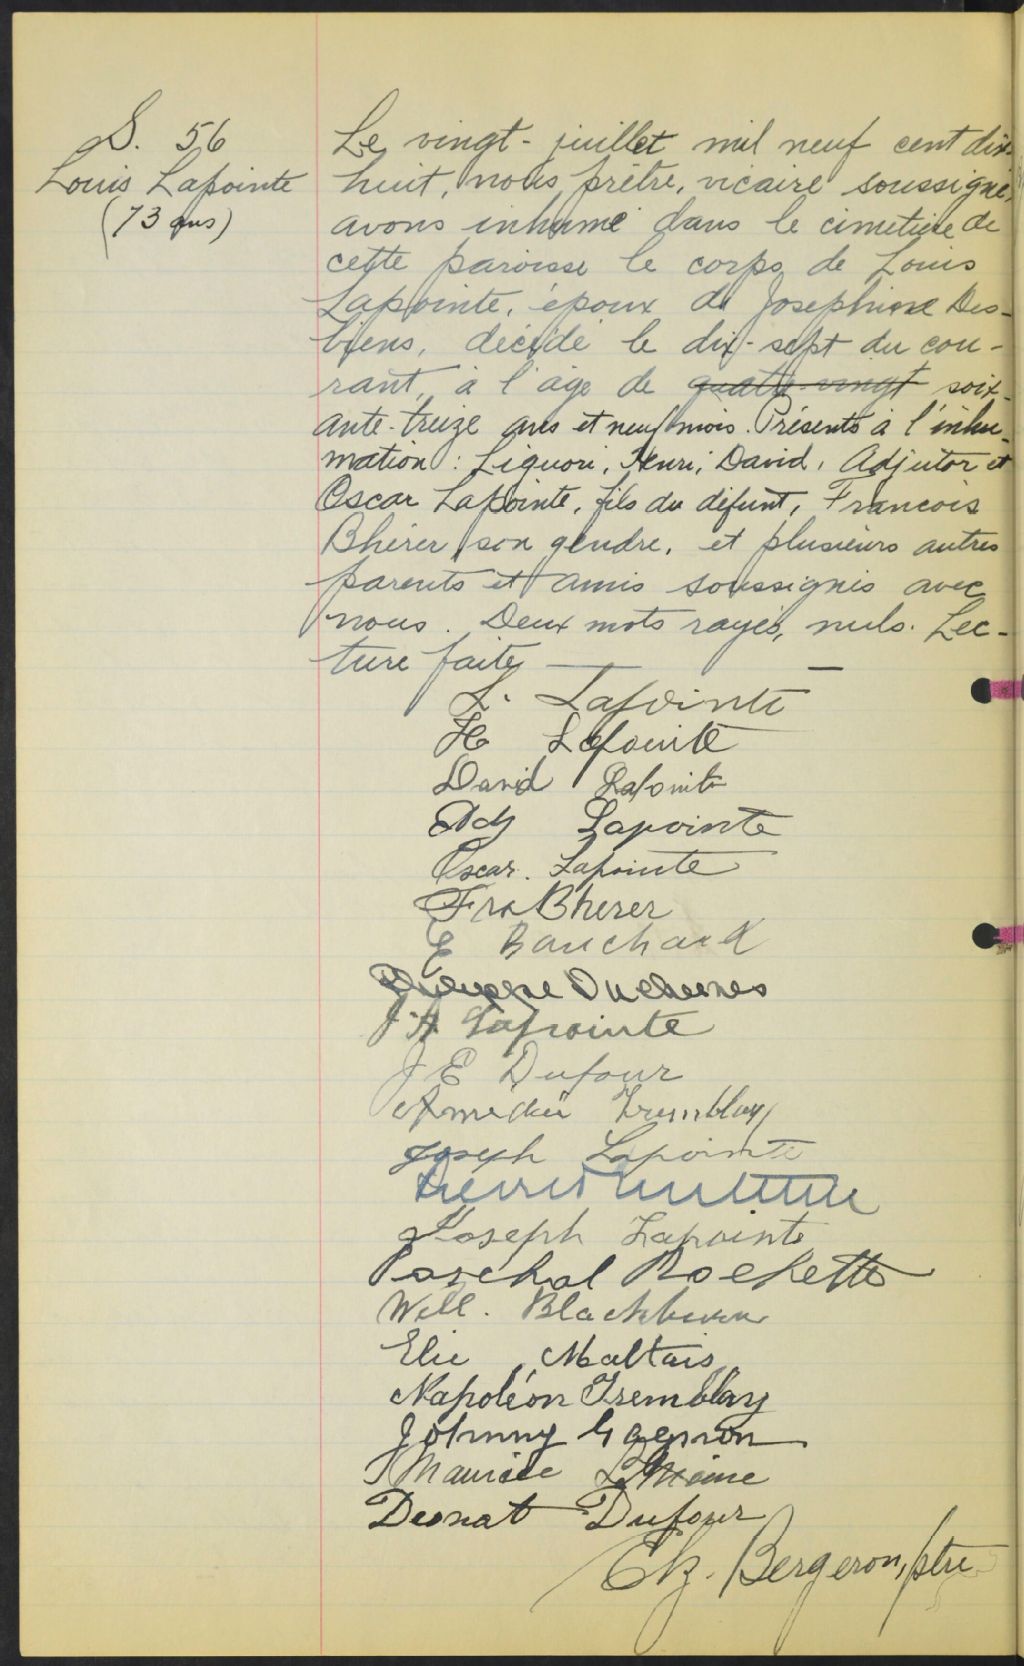 S. 56
Louis Lapointe
(73 ans)
Le vingt-juillet mil neuf cent dix-
huit, nous prêtre, vicaire soussigné,
avons inhumé dans le cimetière de
cette paroisse le corps de Louis
Lapointe, époux de Josephine Des-
biens, décédé le dix-sept du cou-
rant, à l'âge de quatre-vingt soix-
ante-treize ans et neuf mois. Présents à l'inhu-
mation : Liguori, Henri, David, Adjutor et
Oscar Lapointe, fils du défunt, Francois
Bhérer son gendre, et plusieurs autres
parents et amis soussignés avec
nous. Deux mots rayés, nuls. Lec-
ture faite
L. Lapointe
H Lapointe
David Lapointe
Adj Lapointe
Oscar. Lapointe
Frs Bherer
E Bouchard
Duchesnes
J A Lapointe
J E Dufour
Amédée Tremblay
Joseph Lapointe
Joseph Lapointe
Paschal Rochette
Will. Blackburn
Elie Maltais
Napoléon Tremblay
Johnny Gagnon
Maurice
Deonat Dufour
Elz. Bergeron, ptre